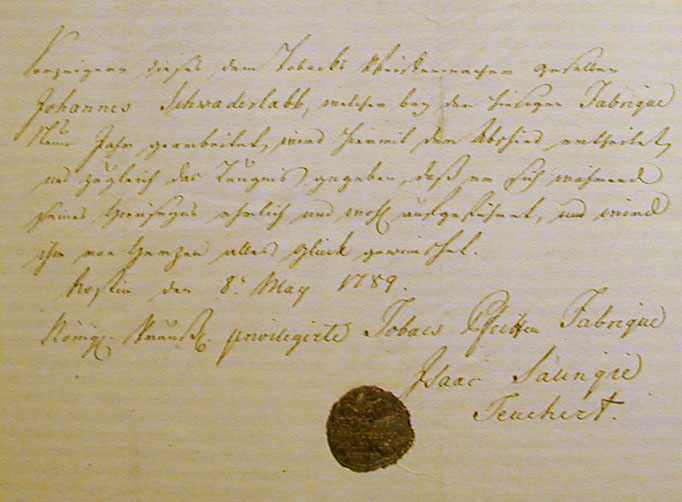 Vorzeigern dieses dem Tobacks Pfeiffenmacher gesellen
Johannes Schwaderlabb, welcher bey der hiesigen Fabrique
Neun Jahr gearbeitet, wird hiermit der Abschied ertheilet,
und zugleich das Zeugnis gegeben, daß er sich während
seines Hierseyns ehrlich und wohl aufgeführet, und wird
ihm von Herzen alles Glück gewünschet.
den 8t. May 1789.
Königl. Preuß. privilegirte Tobacs Pfeiffen Fabrique
Isaac Saungié
Teuchert.